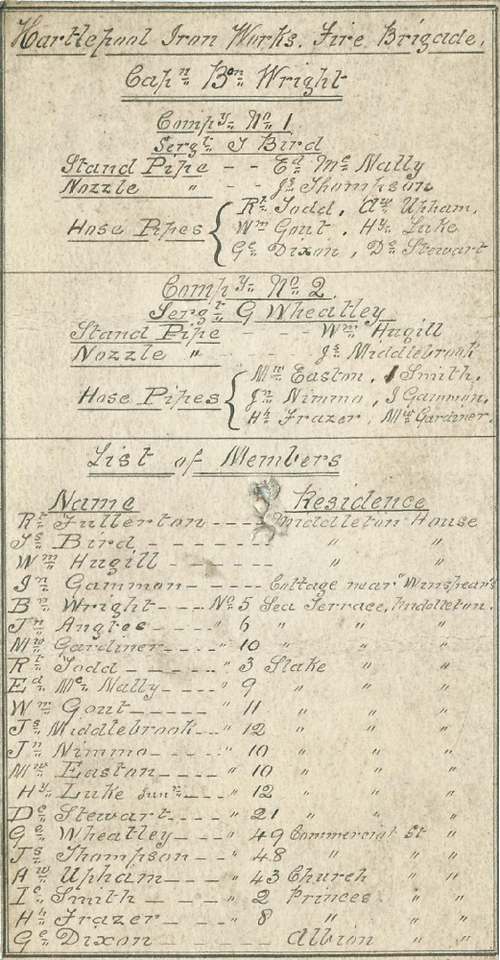 Hartlepool Iron Works, Fire Brigade,
Capn Bon Wright
Compy No 1
Sergt J Bird
Stand Pipe - - Ed Mc Nally
Nozzle " - - Js Thompson
Rt Todd, Aw Upham,
Hose Pipes { Wm Gout, Hy Luke
Ge Dixon, De Stewart
Compy No 2
Sergt G Wheatley
Stand Pipe - - Wm Hugill
Nozzle " - - Js Middlebrook
Mw Easton, J Smith,
Hose Pipes { Jn Nimmo, J Gammon,
Hh Frazer, Mw Gardiner.
List of Members
Name Residence
Rt Fullerton ---- Middleton House
Js Bird -------- " "
Wm Hugill ------- " "
Jn Gammon ----- Cottage near Winspear's
Bn Wright --- No 5 Sea Terrace, Middleton.
Jn Angles --- " 6 " " "
Mw Gardiner --- " 10 " " "
Rt Todd ---- " 3 Slake " "
Ed Mc Nally --- " 9 " " "
Wm Gout ---- " 11 " " "
Js Middlebrook -- " 12 " " "
Jn Nimmo ---- " 10 " " "
Mw Easton ---- " 10 " " "
Hy Luke Junr --- " 12 " " "
De Stewart ---- " 21 " " "
Ge Wheatley --- " 49 Commercial St "
Js Thompson -- " 48 " " "
Aw Upham --- " 43 Church " "
Ic Smith ---- " 2 Princes " "
Hh Frazer --- " 8 " " "
Ge Dixon ------- Albion " "